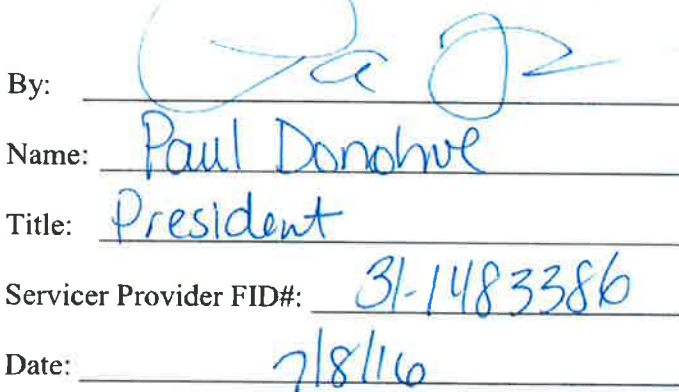 By:
Name: Paul Donohue
Title: President
Servicer Provider FID#: 31-1483386
Date: 7/8/16